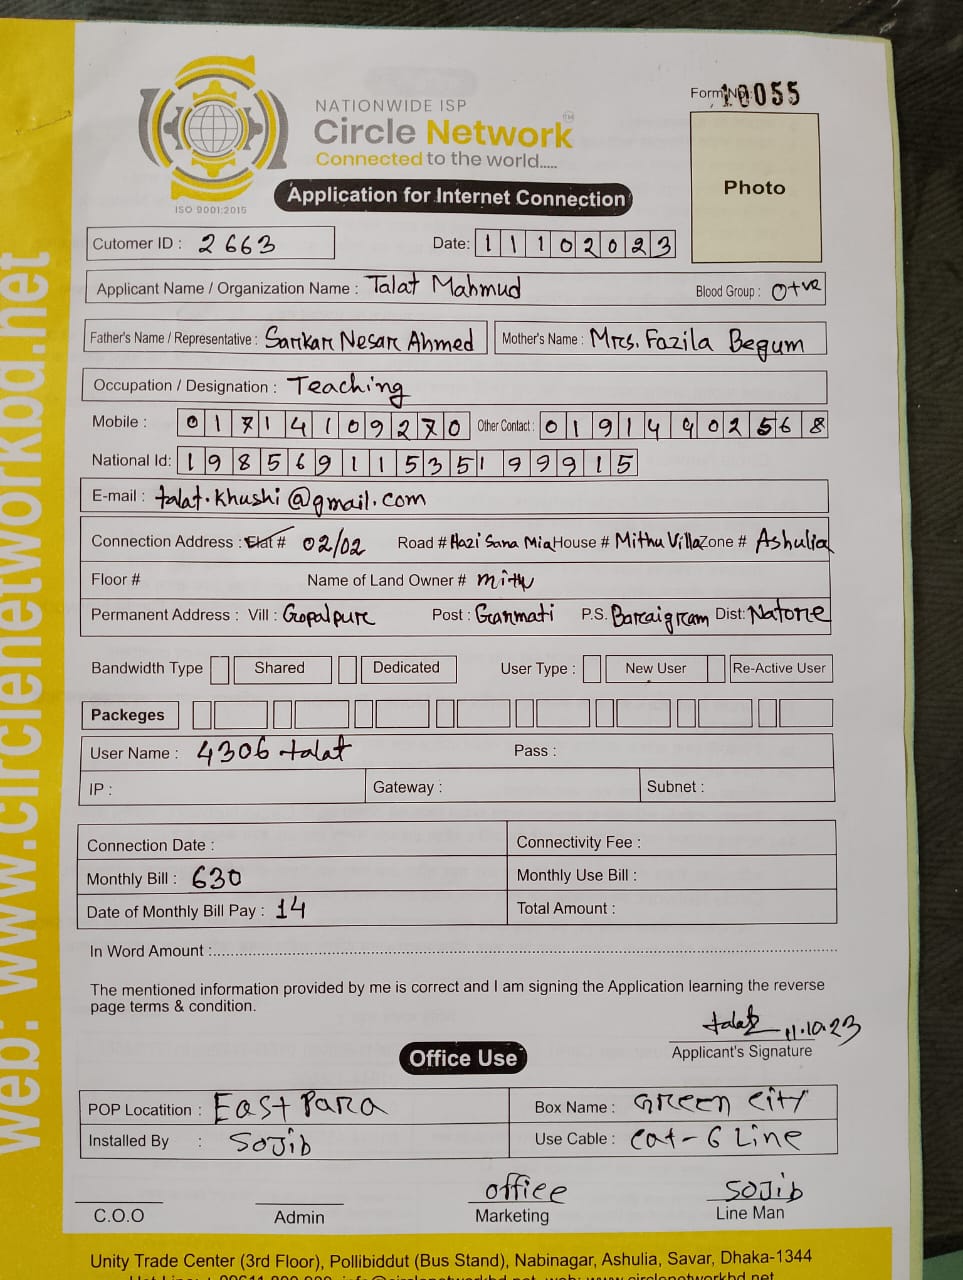 Form No. 10055
NATIONWIDE ISP
Circle Network TM
Connected to the world.....
ISO 9001:2015
Application for Internet Connection
Photo
Cutomer ID : 2663 Date: 11102023
Applicant Name / Organization Name : Talat Mahmud Blood Group : O+ve
Father's Name / Representative : Sarkar Nesar Ahmed Mother's Name : Mrs. Fazila Begum
Occupation / Designation : Teaching
Mobile : 01714109270 Other Contact : 01914902568
National Id: 19856911535199915
E-mail : talat.khushi@gmail.com
Connection Address : Flat # 02/02 Road # Hazi Sana Mia House # Mithu Villa Zone # Ashulia
Floor # Name of Land Owner # mitu
Permanent Address : Vill : Gopalpure Post : Garmati P.S. Baraigram Dist: Natore
Bandwidth Type Shared Dedicated User Type : New User Re-Active User
Packeges
User Name : 4306talat Pass :
IP : Gateway : Subnet :
Connection Date : Connectivity Fee :
Monthly Bill : 630 Monthly Use Bill :
Date of Monthly Bill Pay : 14 Total Amount :
In Word Amount :
The mentioned information provided by me is correct and I am signing the Application learning the reverse
page terms & condition.
talat 11.10.23
Applicant's Signature
Office Use
POP Locatition : East Para Box Name : Green City
Installed By : Sojib Use Cable : Cat-6 Line
office Sojib
C.O.O Admin Marketing Line Man
Unity Trade Center (3rd Floor), Pollibiddut (Bus Stand), Nabinagar, Ashulia, Savar, Dhaka-1344
web: www.circlenetworkbd.net